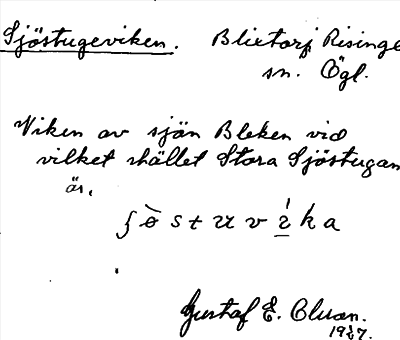 Sjöstugeviken. Blixtorp Risinge
sn. Ögl.
Viken av sjön Bleken vid
vilket stället Stora Sjöstugan
är.
Gustaf E.
1927.